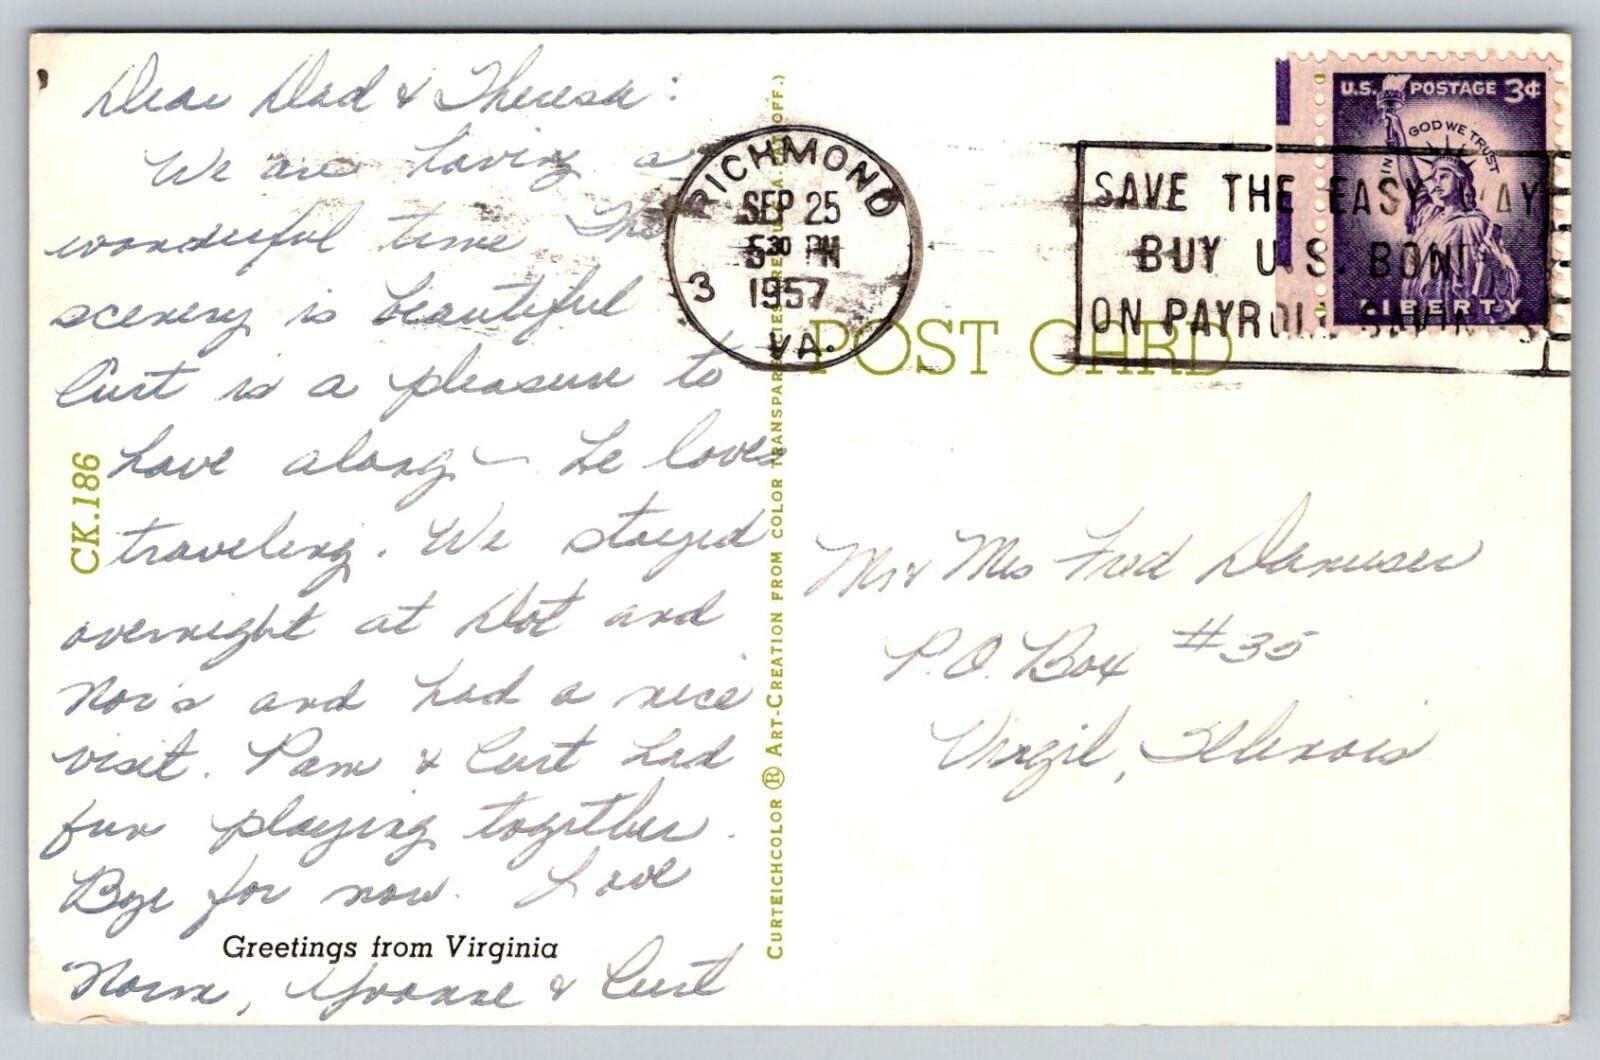 Dear Dad & Theresa:
We are having a
wonderful time. The
scenery is beautiful
Curt is a pleasure to
have along - he loves
traveling. We stayed
overnight at Dot and
Nor's and had a nice
visit. Pam & Curt had
fun playing together.
Bye for now. Love
Greetings from Virginia
Norm, Yvonne & Curt
CK.186
CURTEICHCOLOR ® ART-CREATION FROM COLOR TRANSPARENCIES OFF.)
RICHMOND
SEP 25
5 30 PM
1957
3
VA.
POST CARD
SAVE THE EASY WAY
BUY U.S. BONDS
ON PAYROLL SAVINGS
U.S. POSTAGE 3¢
IN GOD WE TRUST
LIBERTY
Mr & Mrs Fred Danuser
P.O. Box #35
Virgil, Illinois